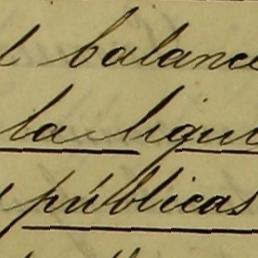 l balance
la liqui
públicas